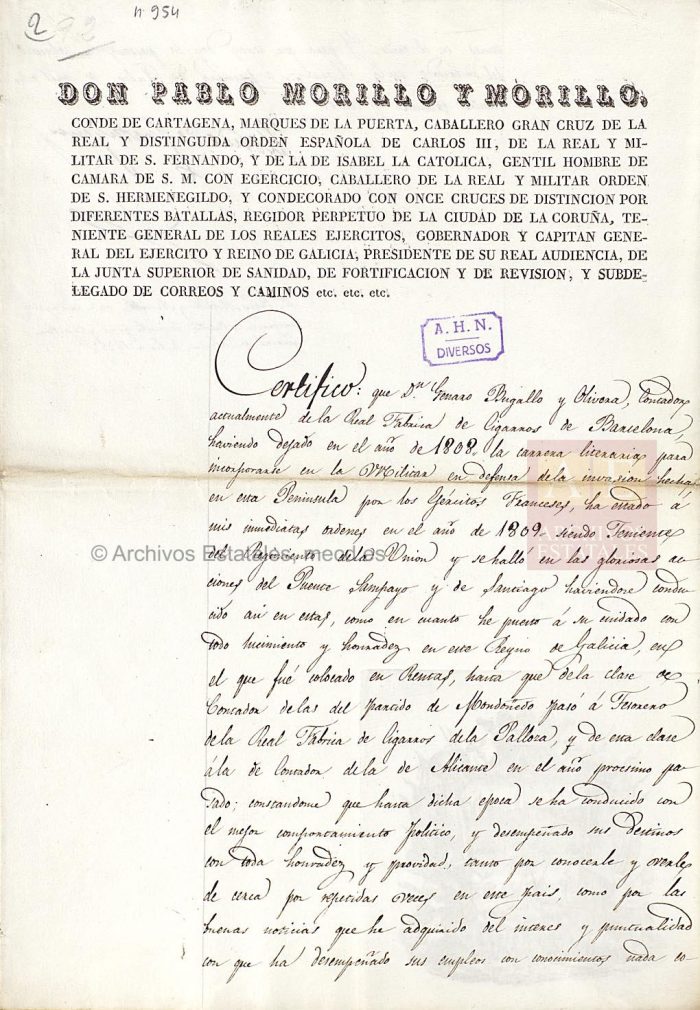 2
n 954
DON PABLO MORILLO Y MORILLO,
CONDE DE CARTAGENA, MARQUES DE LA PUERTA, CABALLERO GRAN CRUZ DE LA
REAL Y DISTINGUIDA ORDEN ESPAÑOLA DE CARLOS III, DE LA REAL Y MI-
LITAR DE S. FERNANDO, Y DE LA DE ISABEL LA CATOLICA, GENTIL HOMBRE DE
CAMARA DE S. M. CON EGERCICIO, CABALLERO DE LA REAL Y MILITAR ORDEN
DE S. HERMENEGILDO, Y CONDECORADO CON ONCE CRUCES DE DISTINCION POR
DIFERENTES BATALLAS, REGIDOR PERPETUO DE LA CIUDAD DE LA CORUÑA, TE-
NIENTE GENERAL DE LOS REALES EJERCITOS, GOBERNADOR Y CAPITAN GENE-
RAL DEL EJERCITO Y REINO DE GALICIA, PRESIDENTE DE SU REAL AUDIENCIA, DE
LA JUNTA SUPERIOR DE SANIDAD, DE FORTIFICACION Y DE REVISION, Y SUBDE-
LEGADO DE CORREOS Y CAMINOS etc. etc. etc.
A. H. N.
DIVERSOS
Certifico: que Dn. Genaro y Olivera, Contador
actualmente de la Real Fabrica de Cigarros de Barcelona,
haviendo dejado en el año de 1808. la carrera literaria para
incorporarse en la Militar en defensa de la invasion hecha
en esta Peninsula por los Egercitos Franceses, ha estado á
mis inmediatas ordenes en el año de 1809. siendo Teniente
del Regimiento de la Union y se halló en las gloriosas ac-
ciones del Puente Sampayo y de Santiago haviendose condu-
cido asi en estas, como en cuanto he puesto á su cuidado con
todo lucimiento y honradez en este Reyno de Galicia, en
el que fué colocado en Rentas, hasta que de la clase de
Contador de las del partido de Mondoñedo pasó á Tesorero
de la Real Fabrica de Cigarros de la Palloza, y de esta clase
á la de Contador de la de Alicante en el año procsimo pa-
sado; constandome que hasta dicha epoca se ha conducido con
el mejor comportamiento politico, y desempeñado sus Destinos
con toda honradez y providad, tanto por conocerle y verle
de cerca por repetidas veces en este pais, como por las
buenas noticias que he adquirido del interes y puntualidad
con que ha desempeñado sus empleos con conocimientos nada co-
© Archivos Estatales, mecd.es
ARCHIVOS
ESTATALES